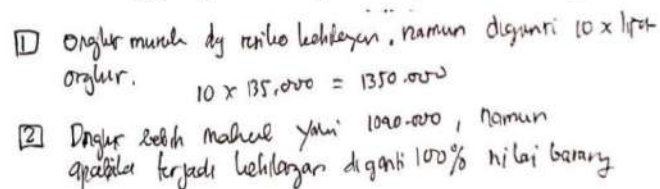 1 Ongkir murah dg resiko kehilangan, namun diganti 10 x lipat
ongkir. 10 x 135.000 = 1350.000
2 Ongkir lebih mahal yakni 1090.000, namun
apabila terjadi kehilangan diganti 100% nilai barang